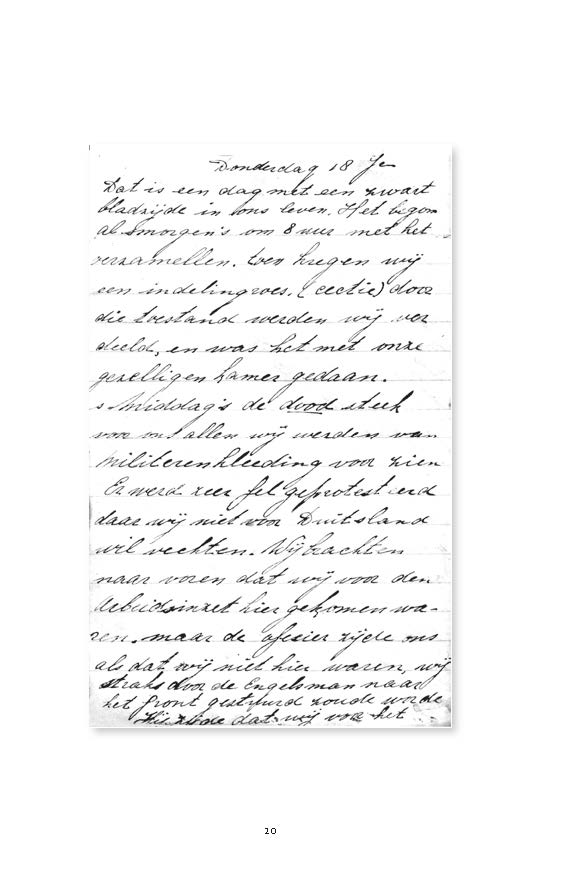 Donderdag 18 Je
Dat is een dag met een zwart
bladzijde in ons leven. Het begon
al smorgen's om 8 uur met het
verzamellen. toen kregen wij
een indeling (cectie) door
die toestand werden wij ver
deeld, en was het met onze
gezelligen kamer gedaan.
s Middag's de dood steek
voor ons allen wij werden van
Militerenkleeding voor zien
Er werd zeer fel geprotesteerd
daar wij niet voor Duitsland
wil vechten. Wij brachten
naar voren dat wij voor den
Arbeidsinzet hier gekomen wa-
ren. maar de ofesier zijde ons
als dat wij niet hier waren, wij
straks door de Engelsman naar
het front gestuurd zoude worde
Hij zijde dat wij voor het
20